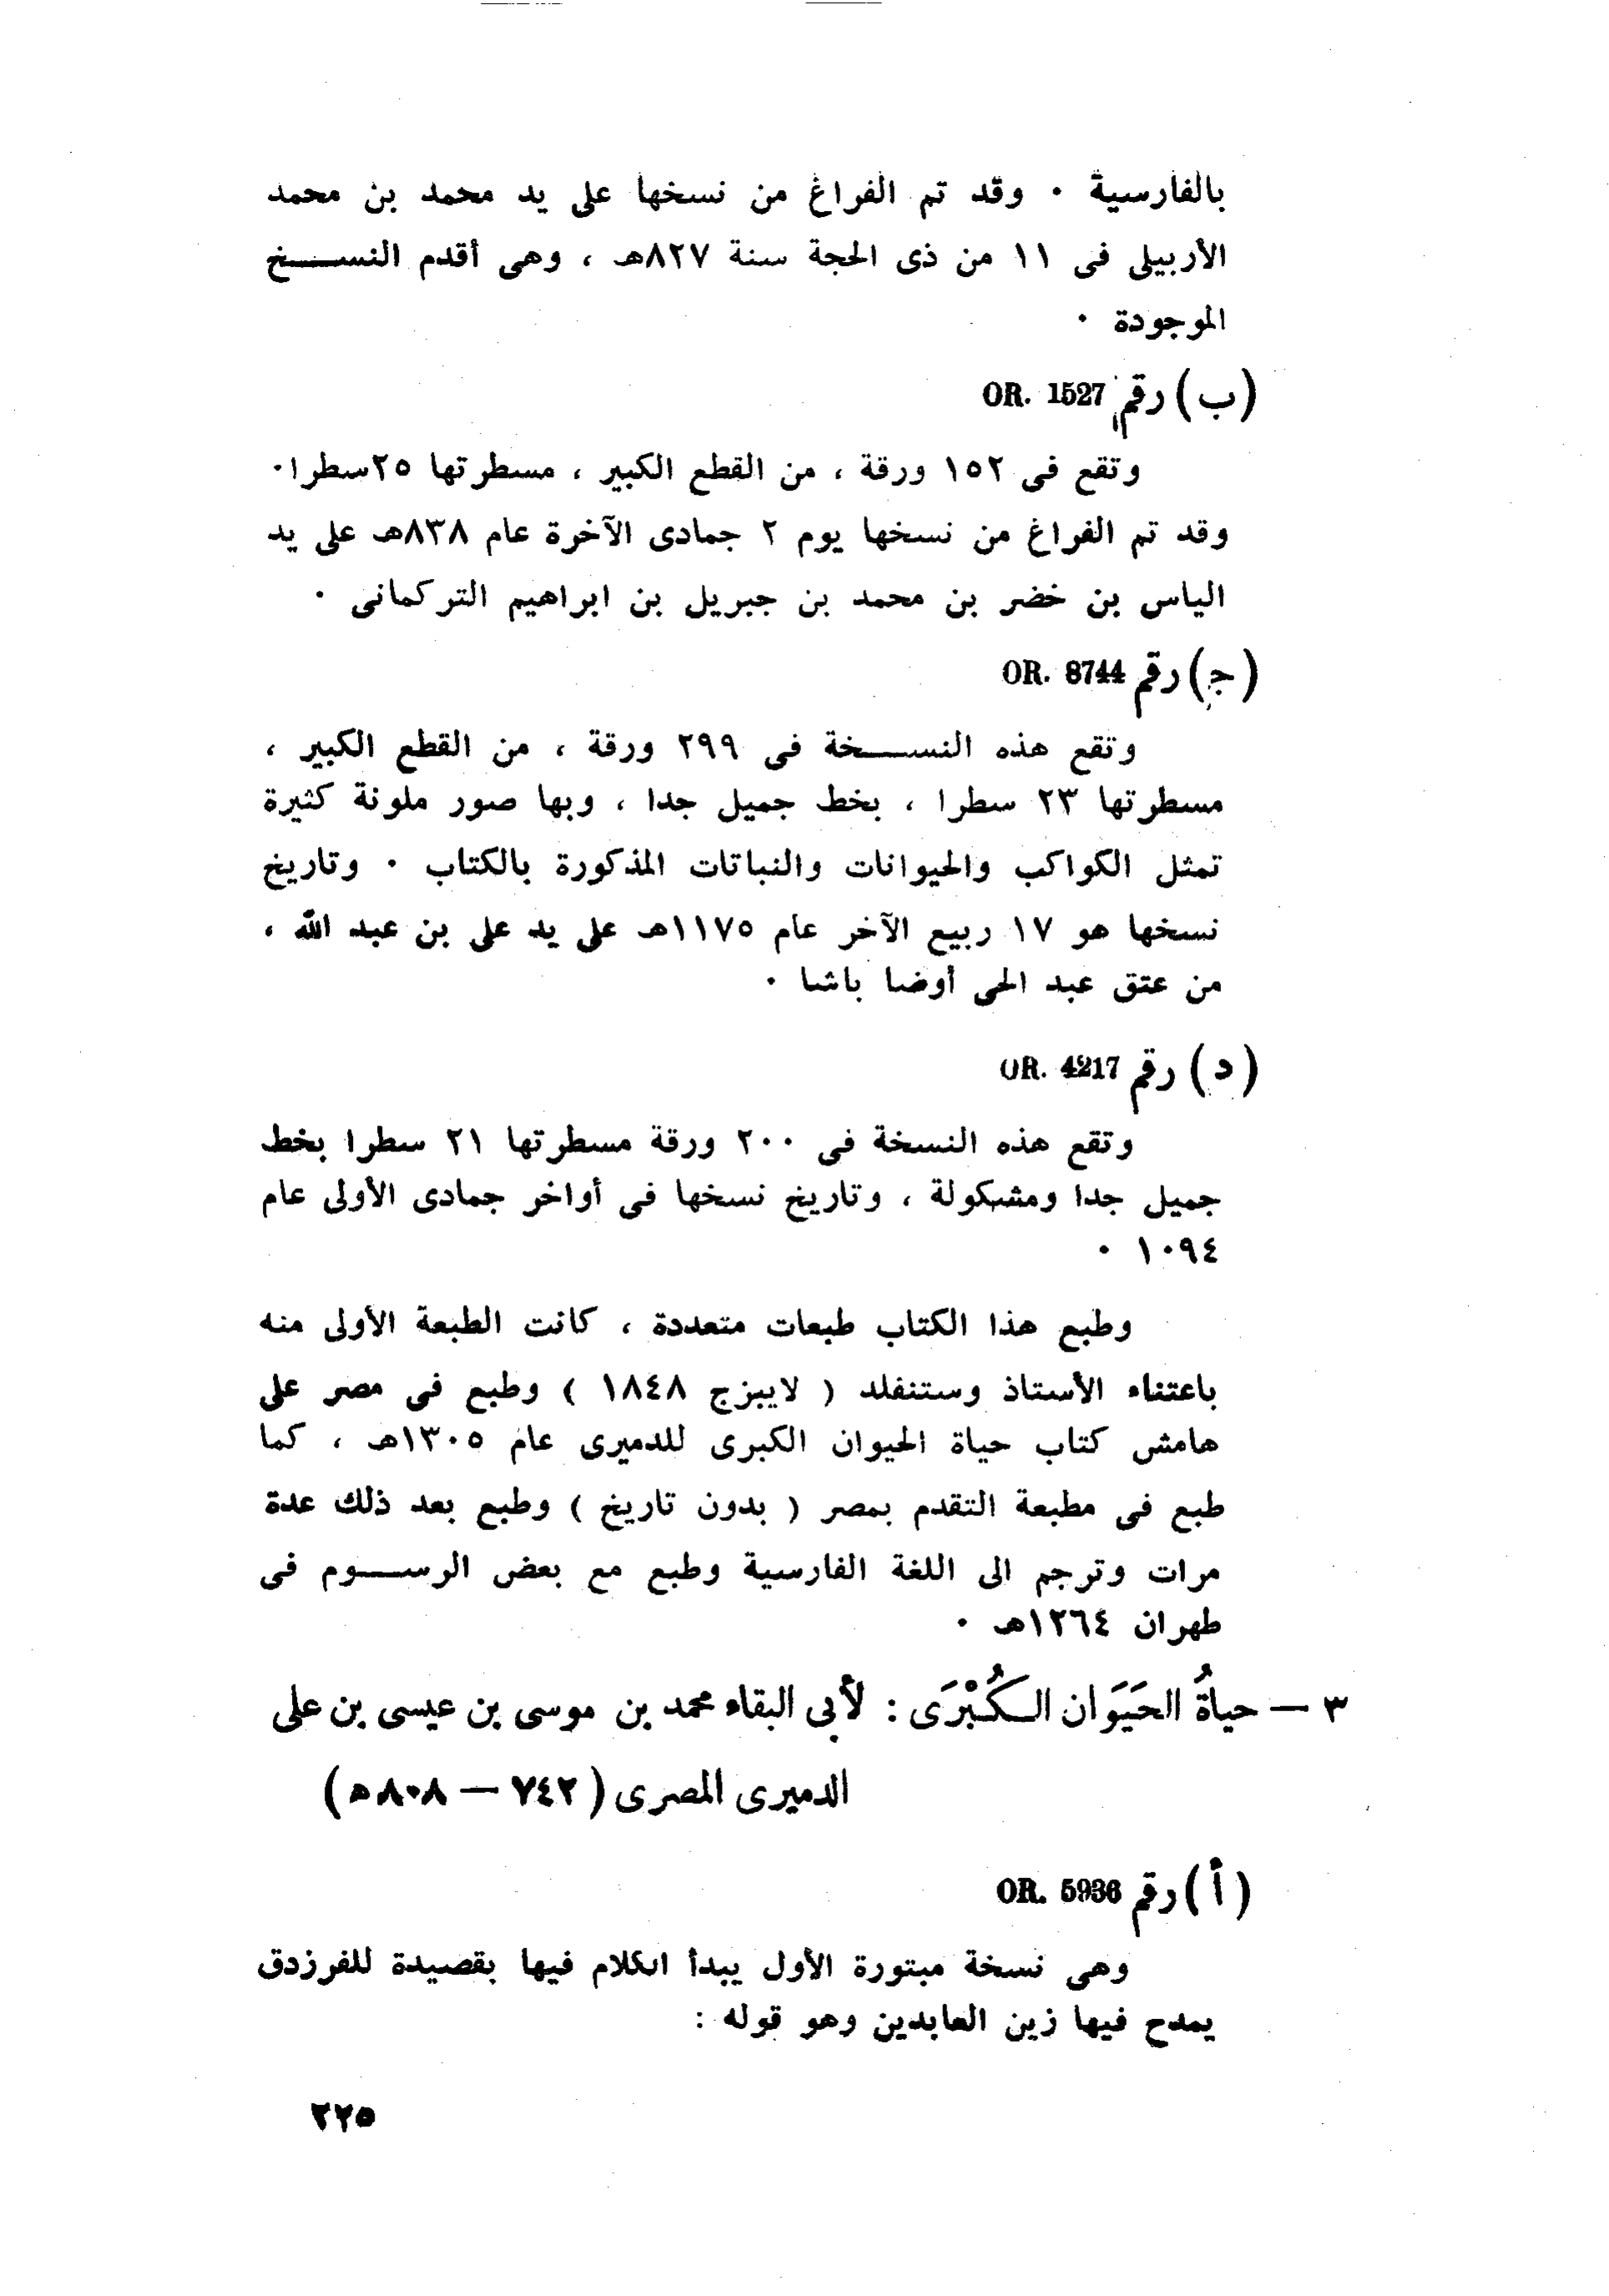 بالفارسية . وقد تم الفراغ من نسخها على يد محمد بن محمد
الأربيلى فى ١١ من ذى الحجة سنة ٨٢٧هـ ، وهى أقدم النســـخ
الموجودة .
(ب) رقم OR. 1527
وتقع فى ١٥٢ ورقة ، من القطع الكبير ، مسطرتها ٢٥سطرا .
وقد تم الفراغ من نسخها يوم ٢ جمادى الآخرة عام ٨٣٨هـ على يد
الياس بن خضر بن محمد بن جبريل بن ابراهيم التركمانى .
(ج) رقم OR. 8744
وتقع هذه النســـخة فى ٢٩٩ ورقة ، من القطع الكبير ،
مسطرتها ٢٣ سطرا ، بخط جميل جدا ، وبها صور ملونة كثيرة
تمثل الكواكب والحيوانات والنباتات المذكورة بالكتاب . وتاريخ
نسخها هو ١٧ ربيع الآخر عام ١١٧٥هـ على يد على بن عبد الله ،
من عتق عبد الحى أوضا باشا .
(د) رقم OR. 4217
وتقع هذه النسخة فى ٢٠٠ ورقة مسطرتها ٢١ سطرا بخط
جميل جدا ومشكولة ، وتاريخ نسخها فى أواخر جمادى الأولى عام
١٠٩٤ .
وطبع هذا الكتاب طبعات متعددة ، كانت الطبعة الأولى منه
باعتناء الأستاذ وستنفلد ( لايبزج ١٨٤٨ ) وطبع فى مصر على
هامش كتاب حياة الحيوان الكبرى للدميرى عام ١٣٠٥هـ ، كما
طبع فى مطبعة التقدم بمصر ( بدون تاريخ ) وطبع بعد ذلك عدة
مرات وترجم الى اللغة الفارسية وطبع مع بعض الرســـوم فى
طهران ١٢٦٤هـ .
٣ — حياةُ الحَيَوَان الكُبْرَى : لأبى البقاء محمد بن موسى بن عيسى بن على
الدميرى المصرى ( ٧٤٢ — ٨٠٨ هـ )
(أ) رقم OR. 5936
وهى نسخة مبتورة الأول يبدأ الكلام فيها بقصيدة للفرزدق
يمدح فيها زين العابدين وهو قوله :
٢٢٥